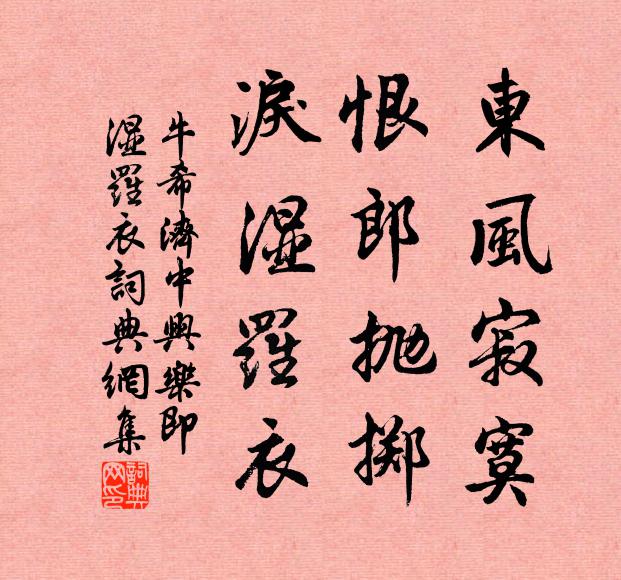 東風寂寞
恨郎抛擲
淚濕羅衣
牛希濟中興樂即
濕羅衣詞典網集
詞典网印